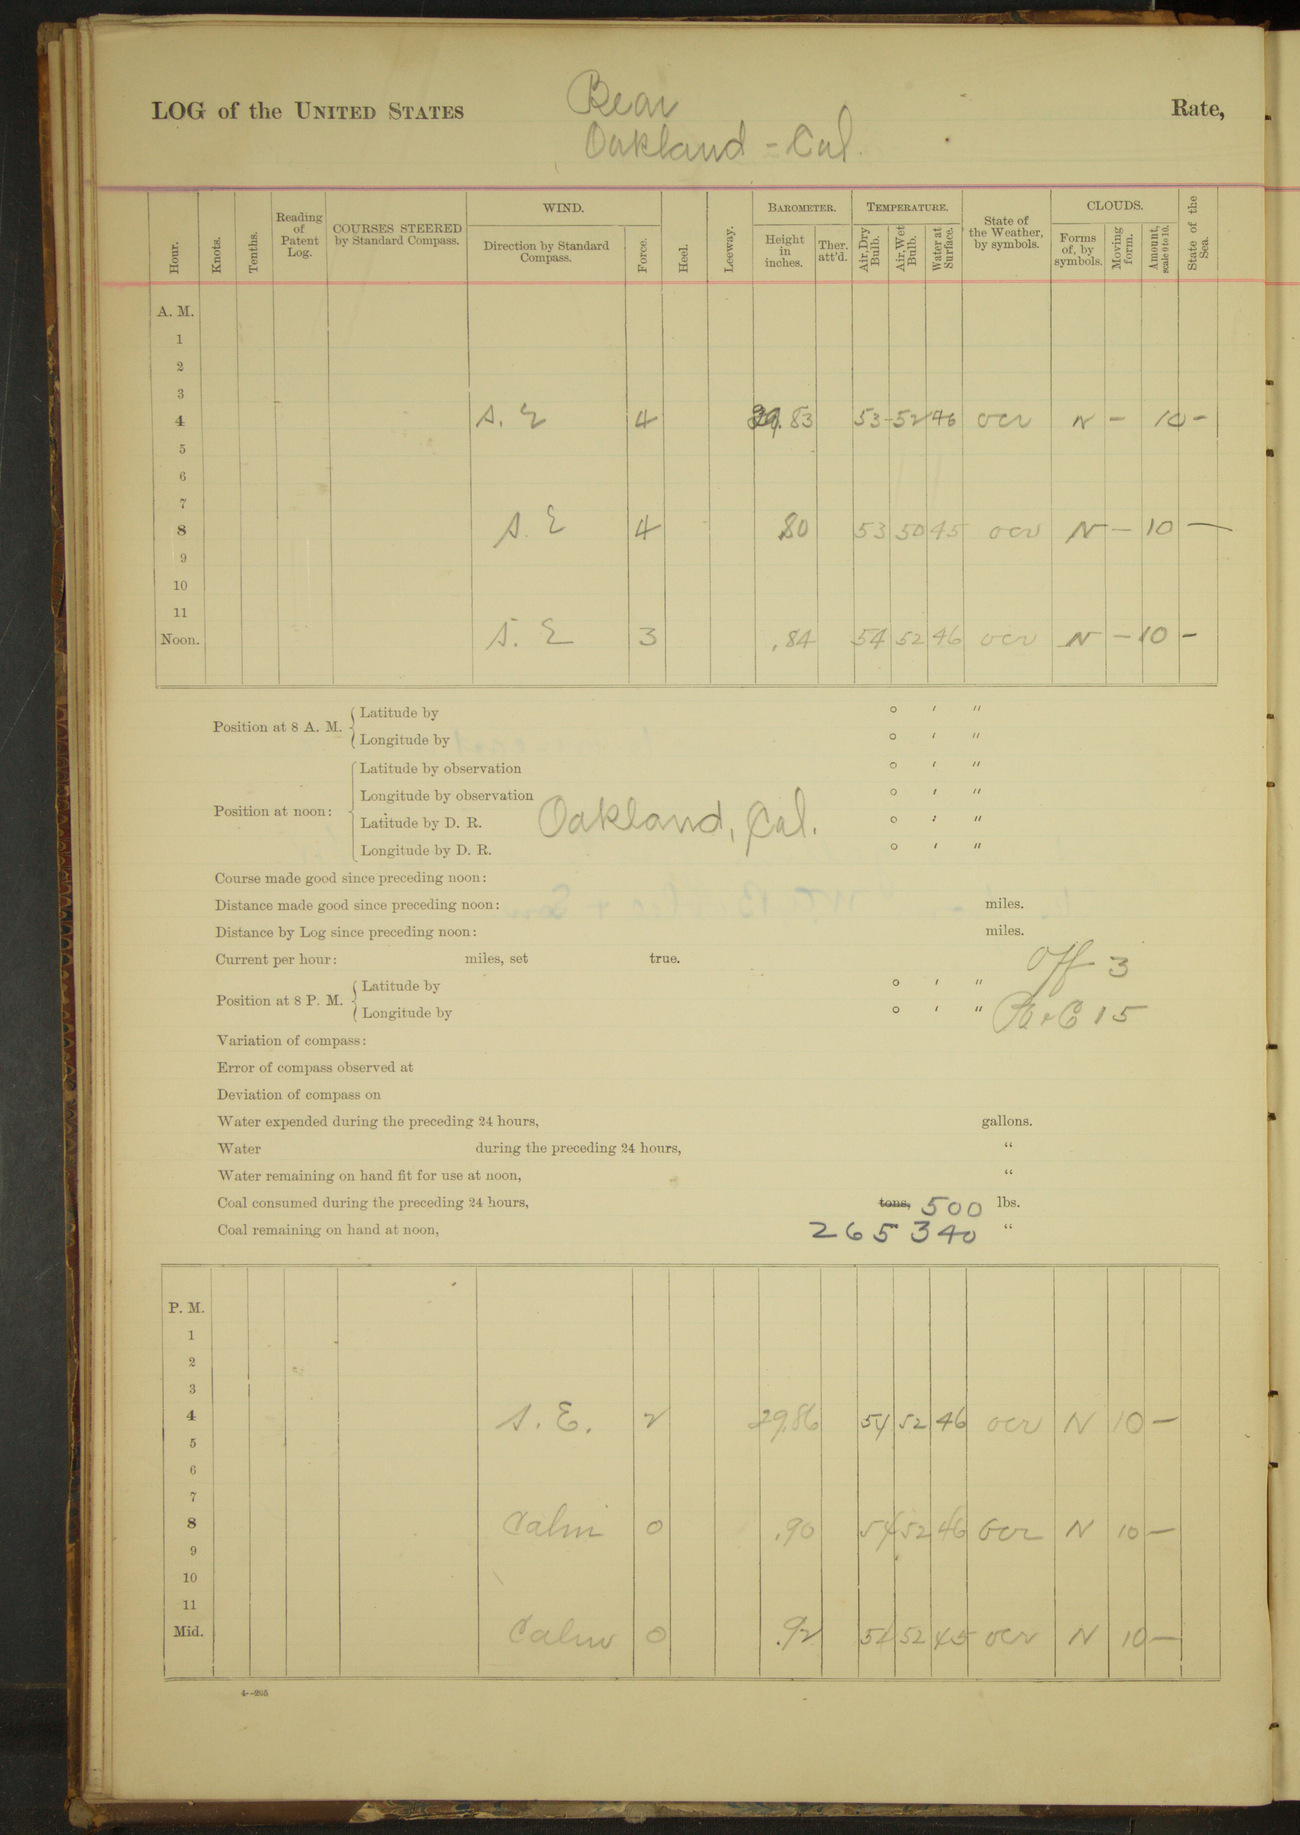 LOG of the UNITED STATES Bear Rate,
Oakland - Cal.
Hour. Knots. Tenths. Reading of Patent Log. COURSES STEERED by Standard Compass. WIND. Direction by Standard Compass. Force. Heel. Leeway. BAROMETER. Height in inches. Ther. att'd. TEMPERATURE. Air, Dry Bulb. Air, Wet Bulb. Water at Surface. State of the Weather, by symbols. CLOUDS. Forms of, by symbols. Moving form. Amount, scale 0 to 10. State of the Sea.
A. M.
1
2
3
4 S. E 4 29.83 53 - 52 46 ocr N - 10 -
5
6
7
8 S. E 4 .80 53 50 45 ocr N - 10 -
9
10
11
Noon. S. E 3 .84 54 52 46 ocr N - 10 -
Position at 8 A. M. Latitude by ° ′ ″
Longitude by ° ′ ″
Position at noon: Latitude by observation ° ′ ″
Longitude by observation ° ′ ″
Latitude by D. R. Oakland, Cal. ° ′ ″
Longitude by D. R. ° ′ ″
Course made good since preceding noon:
Distance made good since preceding noon: miles.
Distance by Log since preceding noon: miles.
Current per hour: miles, set true. Off 3
Position at 8 P. M. Latitude by ° ′ ″
Longitude by ° ′ ″ 15
Variation of compass:
Error of compass observed at
Deviation of compass on
Water expended during the preceding 24 hours, gallons.
Water during the preceding 24 hours, “
Water remaining on hand fit for use at noon, “
Coal consumed during the preceding 24 hours, tons, 500 lbs.
Coal remaining on hand at noon, 265340 “
P. M.
1
2
3
4 S. E. 2 29.86 54 52 46 ocr N 10 -
5
6
7
8 Calm 0 .90 54 52 46 ocr N 10 -
9
10
11
Mid. Calm 0 .92 52 45 ocr N 10 -
4--205